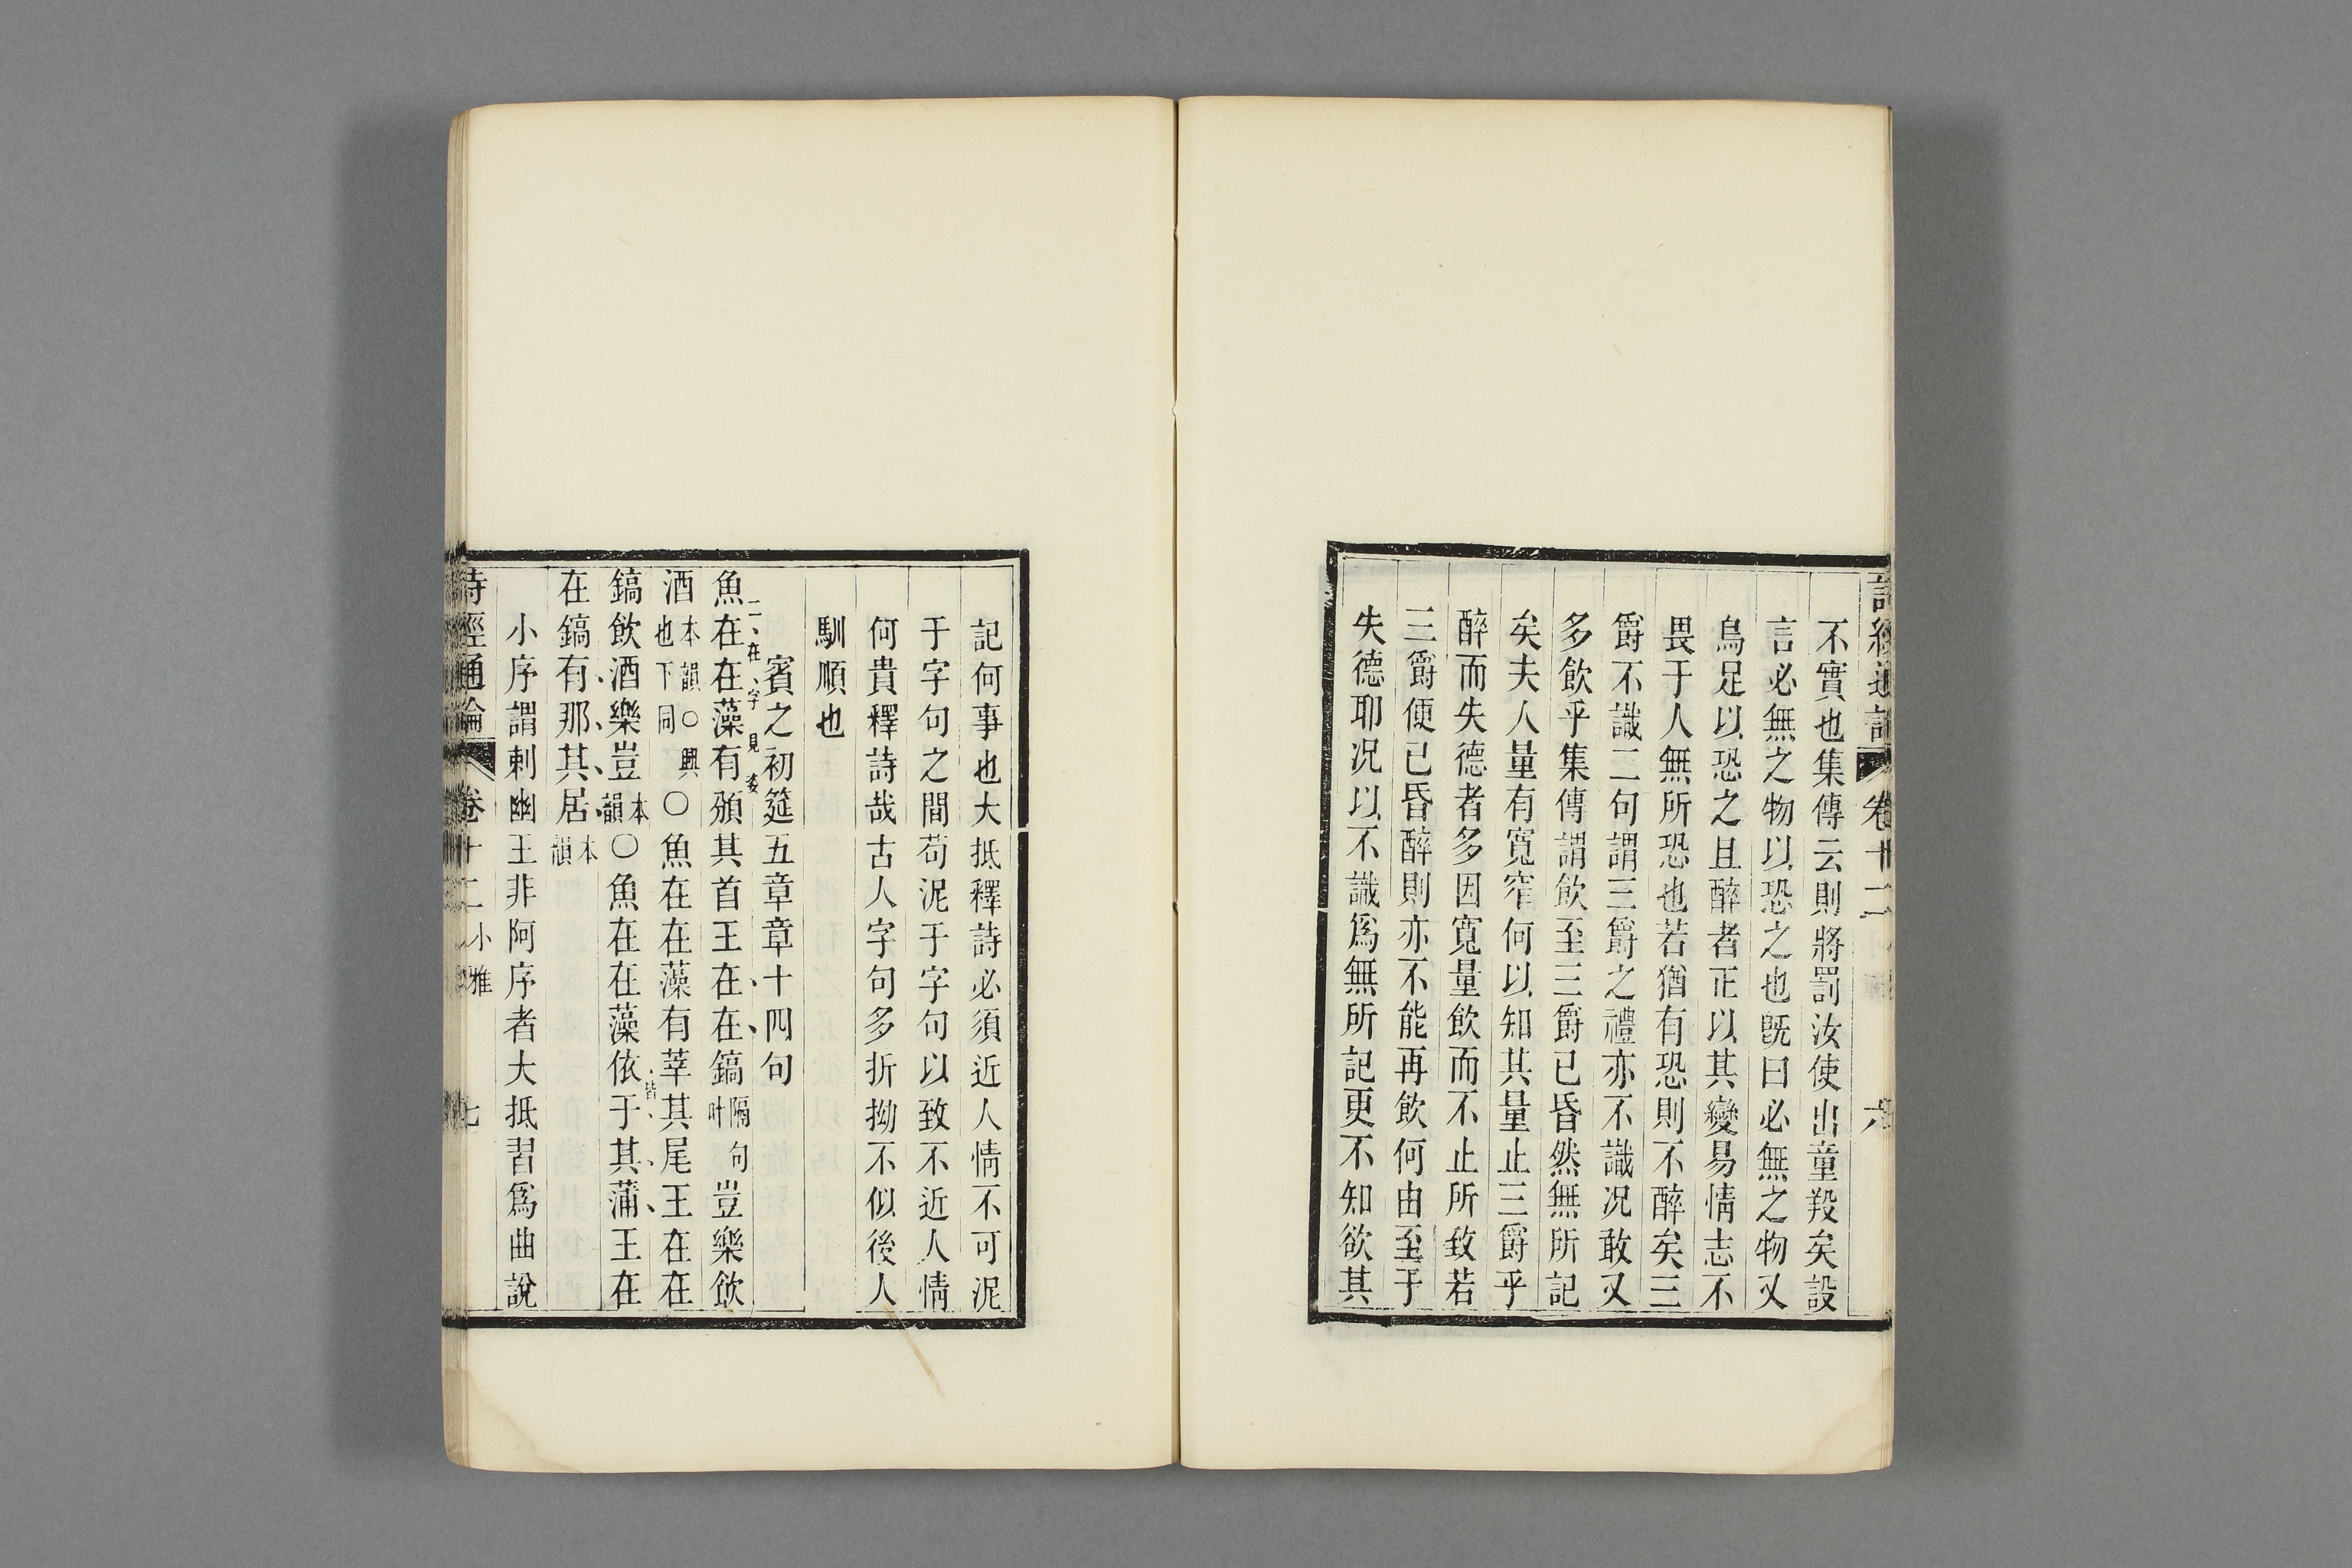 詩經通論 卷十二 六
不實也集傳云則將罰汝使出童羖矣設
言必無之物以恐之也旣曰必無之物又
烏足以恐之且醉者正以其變易情志不
畏于人無所恐也若猶有恐則不醉矣三
爵不識二句謂三爵之禮亦不識况敢又
多飮乎集傳謂飮至三爵已昏然無所記
矣夫人量有寬窄何以知其量止三爵乎
醉而失德者多因寬量飮而不止所致若
三爵便已昏醉則亦不能再飮何由至于
失德耶况以不識爲無所記更不知欲其
記何事也大抵釋詩必須近人情不可泥
于字句之間苟泥于字句以致不近人情
何貴釋詩哉古人字句多折拗不似後人
馴順也
賓之初筵五章章十四句
二在字見姿
魚在在藻有頒其首王在在鎬隔句叶豈樂飮
酒本韻○興也下同○魚在在藻有莘其尾王在在
鎬飮酒樂豈本韻○魚在在藻依于其蒲王在
在鎬有那其居本韻
小序謂刺幽王非阿序者大抵習爲曲說
詩經通論 卷十二 小雅 七